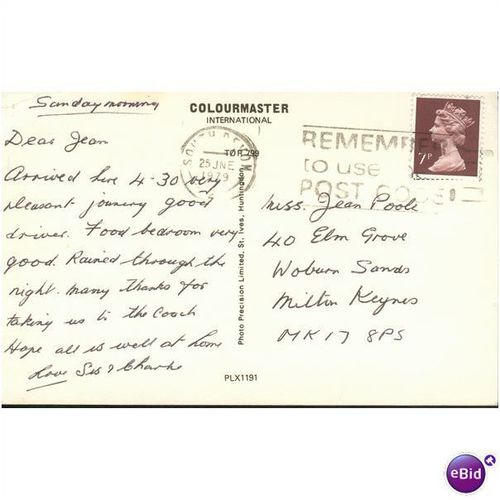 Sunday morning
Dear Jean
Arrived here 4-30 very
pleasant journey good
driver. Food bedroom very
good. Rained through the
night. Many thanks for
taking us to the coach
Hope all is well at home
Love Sis & Charlie
COLOURMASTER
INTERNATIONAL
TOR 799
Photo Precision Limited, St. Ives, Huntingdon
PLX1191
SOUTH DEVON
25 JNE
1979
REMEMBER
to use
POST CODES
7P
Miss. Jean Poole
40 Elm Grove
Woburn Sands
Milton Keynes
MK17 8PS
eBid